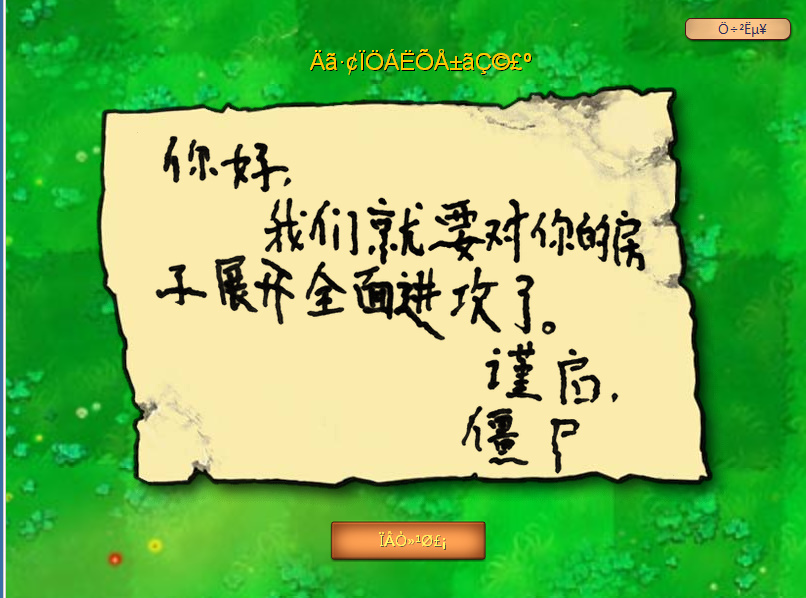 Ö÷²Ëµ¥
Äã·¢ÏÖÁËÕÅ±ãÇ©£º
你好,
我们就要对你的房
子展开全面进攻了。
谨启,
僵尸
ÏÂÒ»¹Ø£¡